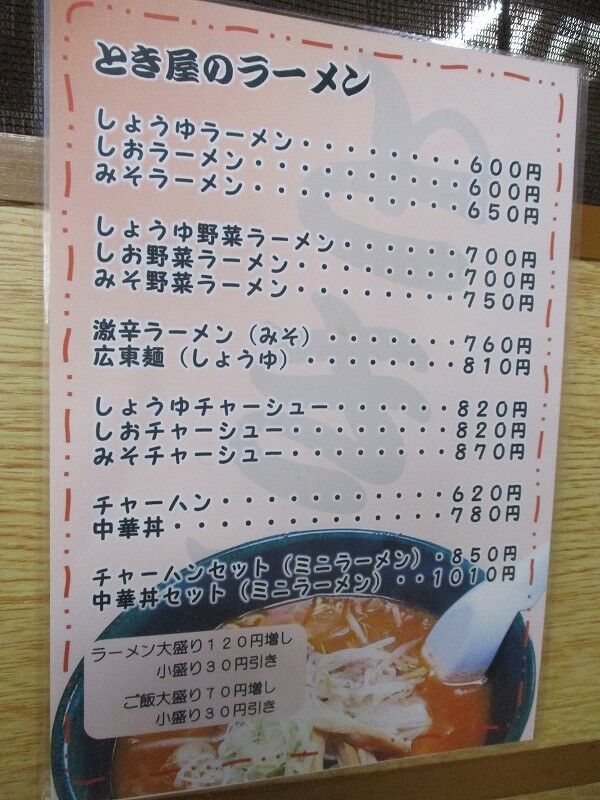 とき屋のラーメン
しょうゆラーメン・・・・・・・・600円
しおラーメン・・・・・・・・・・600円
みそラーメン・・・・・・・・・・650円
しょうゆ野菜ラーメン・・・・・・700円
しお野菜ラーメン・・・・・・・・700円
みそ野菜ラーメン・・・・・・・・750円
激辛ラーメン（みそ）・・・・・・・760円
広東麺（しょうゆ）・・・・・・・・810円
しょうゆチャーシュー・・・・・・820円
しおチャーシュー・・・・・・・・820円
みそチャーシュー・・・・・・・・870円
チャーハン・・・・・・・・・・・620円
中華丼・・・・・・・・・・・・・780円
チャーハンセット（ミニラーメン）・850円
中華丼セット（ミニラーメン）・・1010円
ラーメン大盛り120円増し
小盛り30円引き
ご飯大盛り70円増し
小盛り30円引き